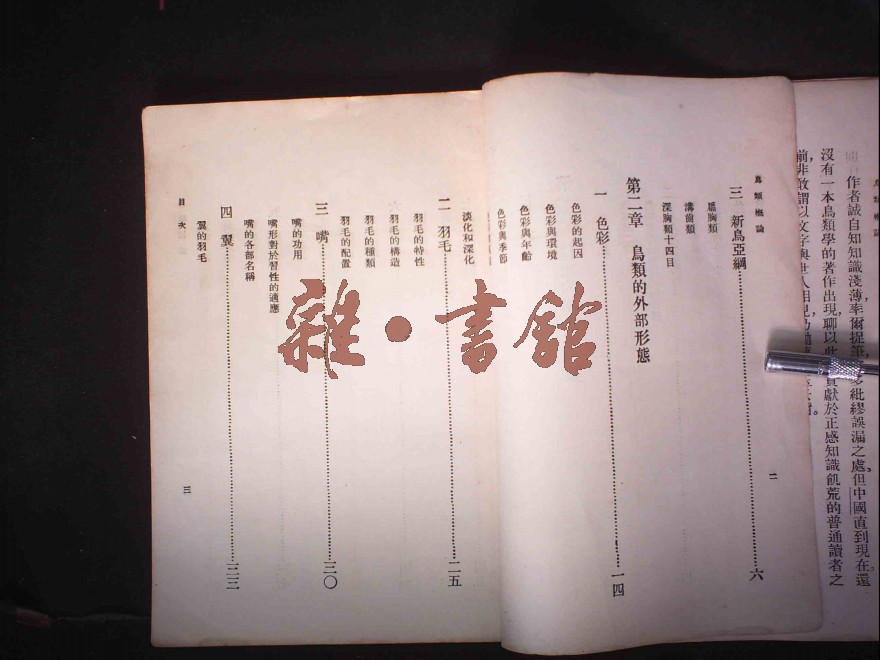 作者誠自知知識淺薄率爾捉筆
紕繆誤漏之處但中國直到現在還
沒有一本鳥類學的著作出現聊以此
貢獻於正感知識飢荒的普通讀者之
前,非敢謂以文字與世人相見
鳥類概論
二
三 新鳥亞綱……六
扁胸類
溝齒類
深胸類十四目
第二章 鳥類的外部形態
一 色彩……一四
色彩的起因
色彩與環境
色彩與年齡
色彩與季節
淡化和深化
二 羽毛……二五
羽毛的特性
羽毛的構造
羽毛的種類
羽毛的配置
三 嘴……三〇
嘴的功用
嘴形對於習性的適應
嘴的各部名稱
四 翼……三三
翼的羽毛
目次
三
雜·書館